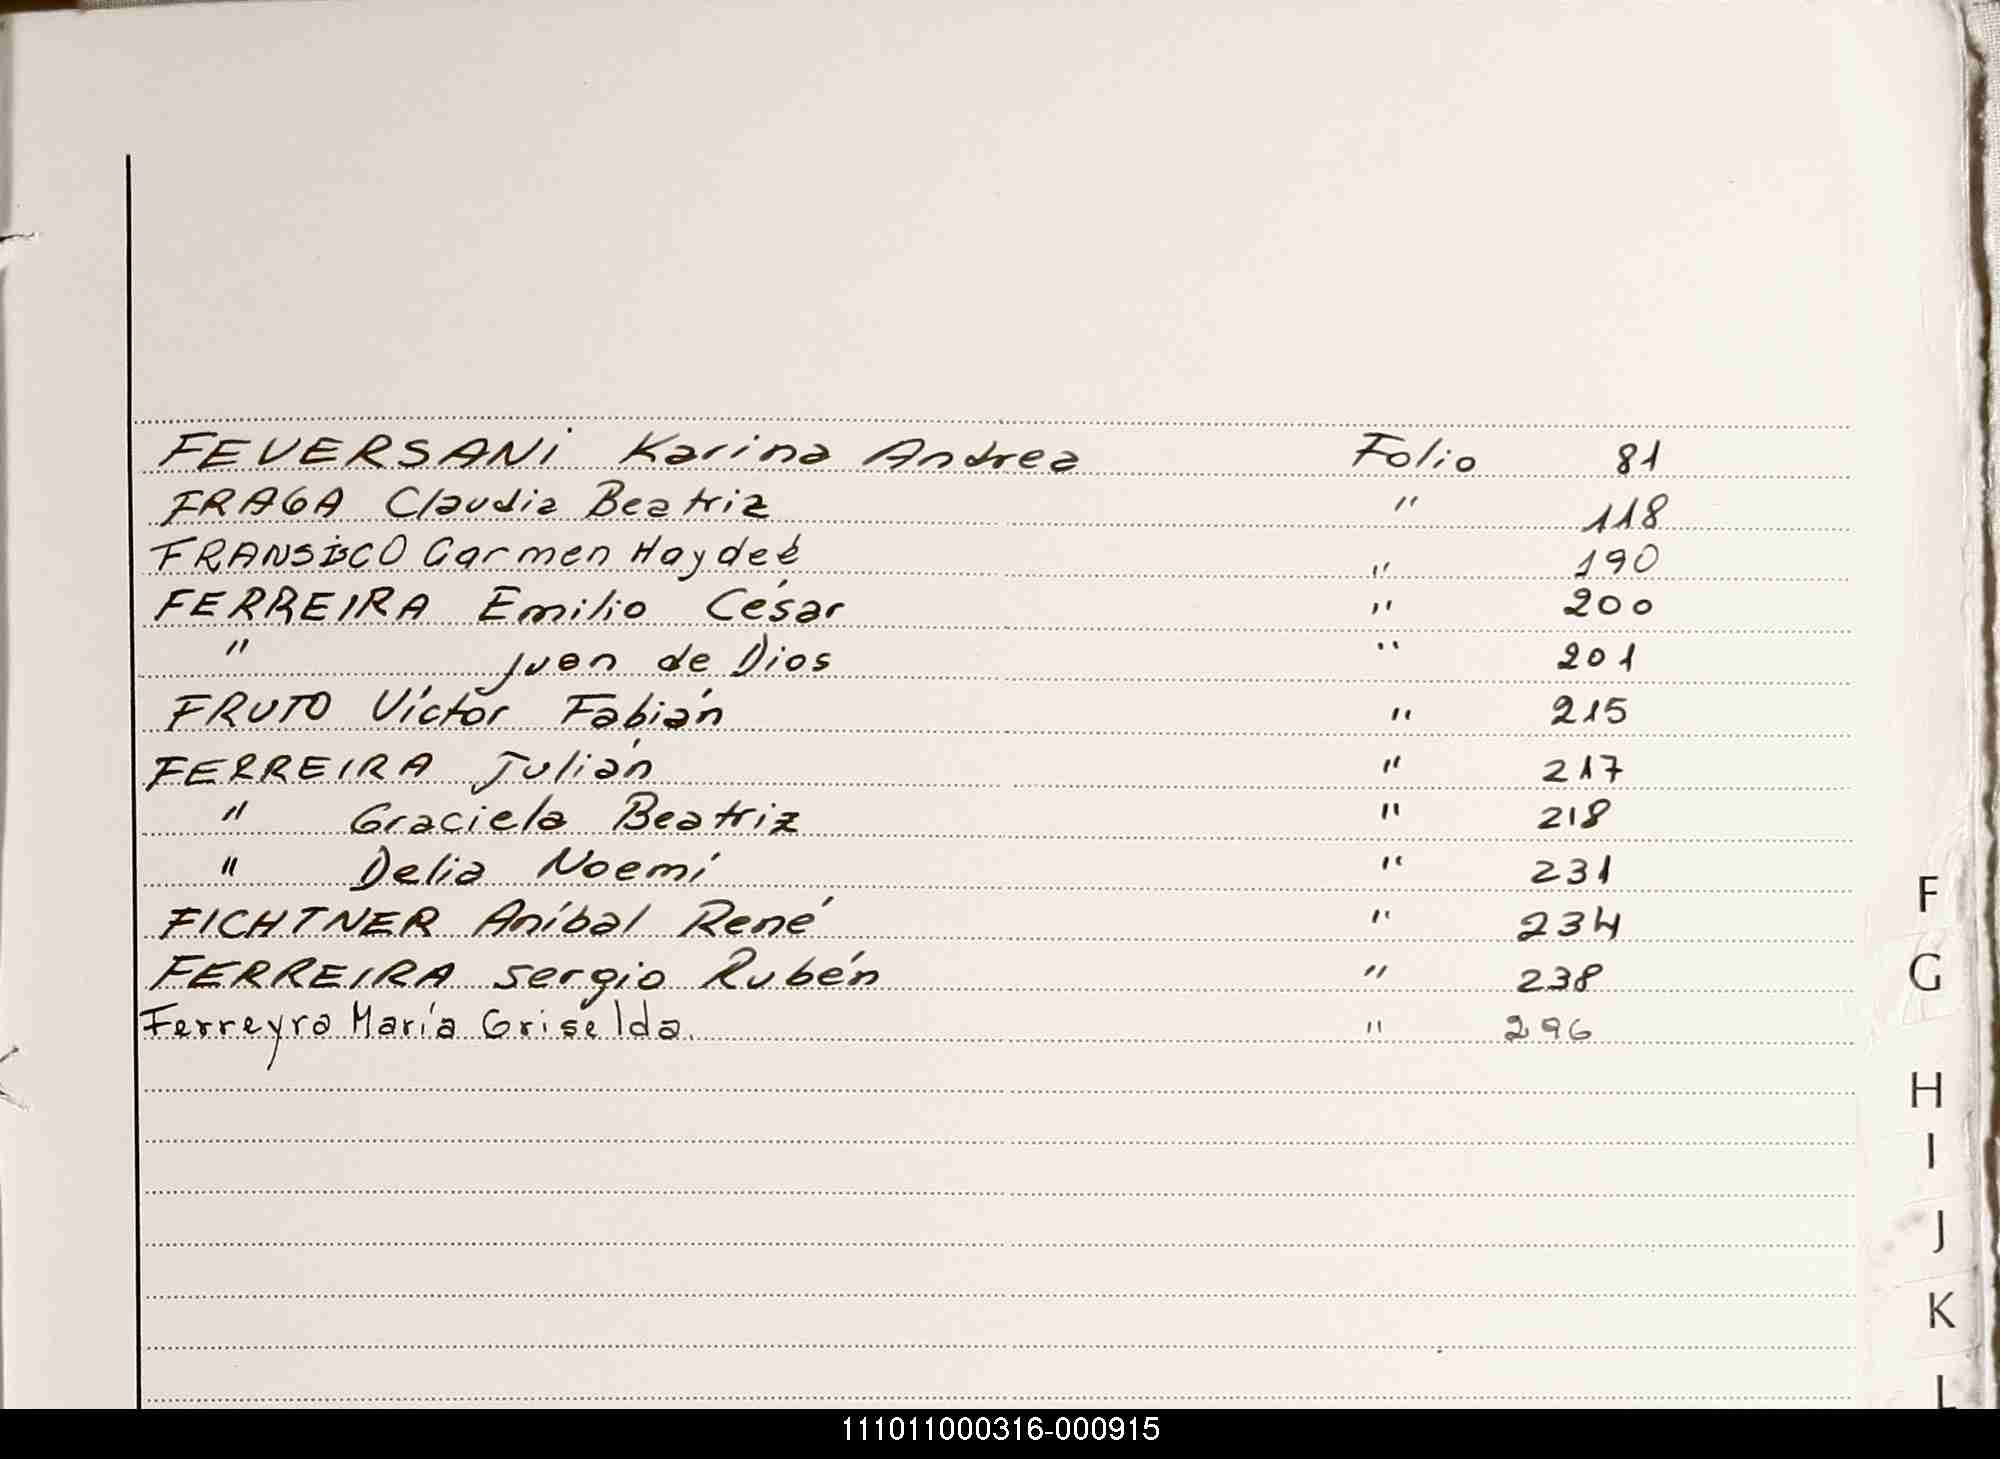 FEVERSANI Karina Andrea Folio 81
FRAGA Claudia Beatriz " 118
FRANSISCO Carmen Haydeé " 190
FERREIRA Emilio César " 200
" Juan de Dios " 201
FRUTO Víctor Fabián " 215
FERREIRA Julián " 217
" Graciela Beatriz " 218
" Delia Noemí " 231
FICHTNER Aníbal René " 234
FERREIRA Sergio Rubén " 238
Ferreyra María Griselda. " 296
F
G
H
I
J
K
L
111011000316-000915